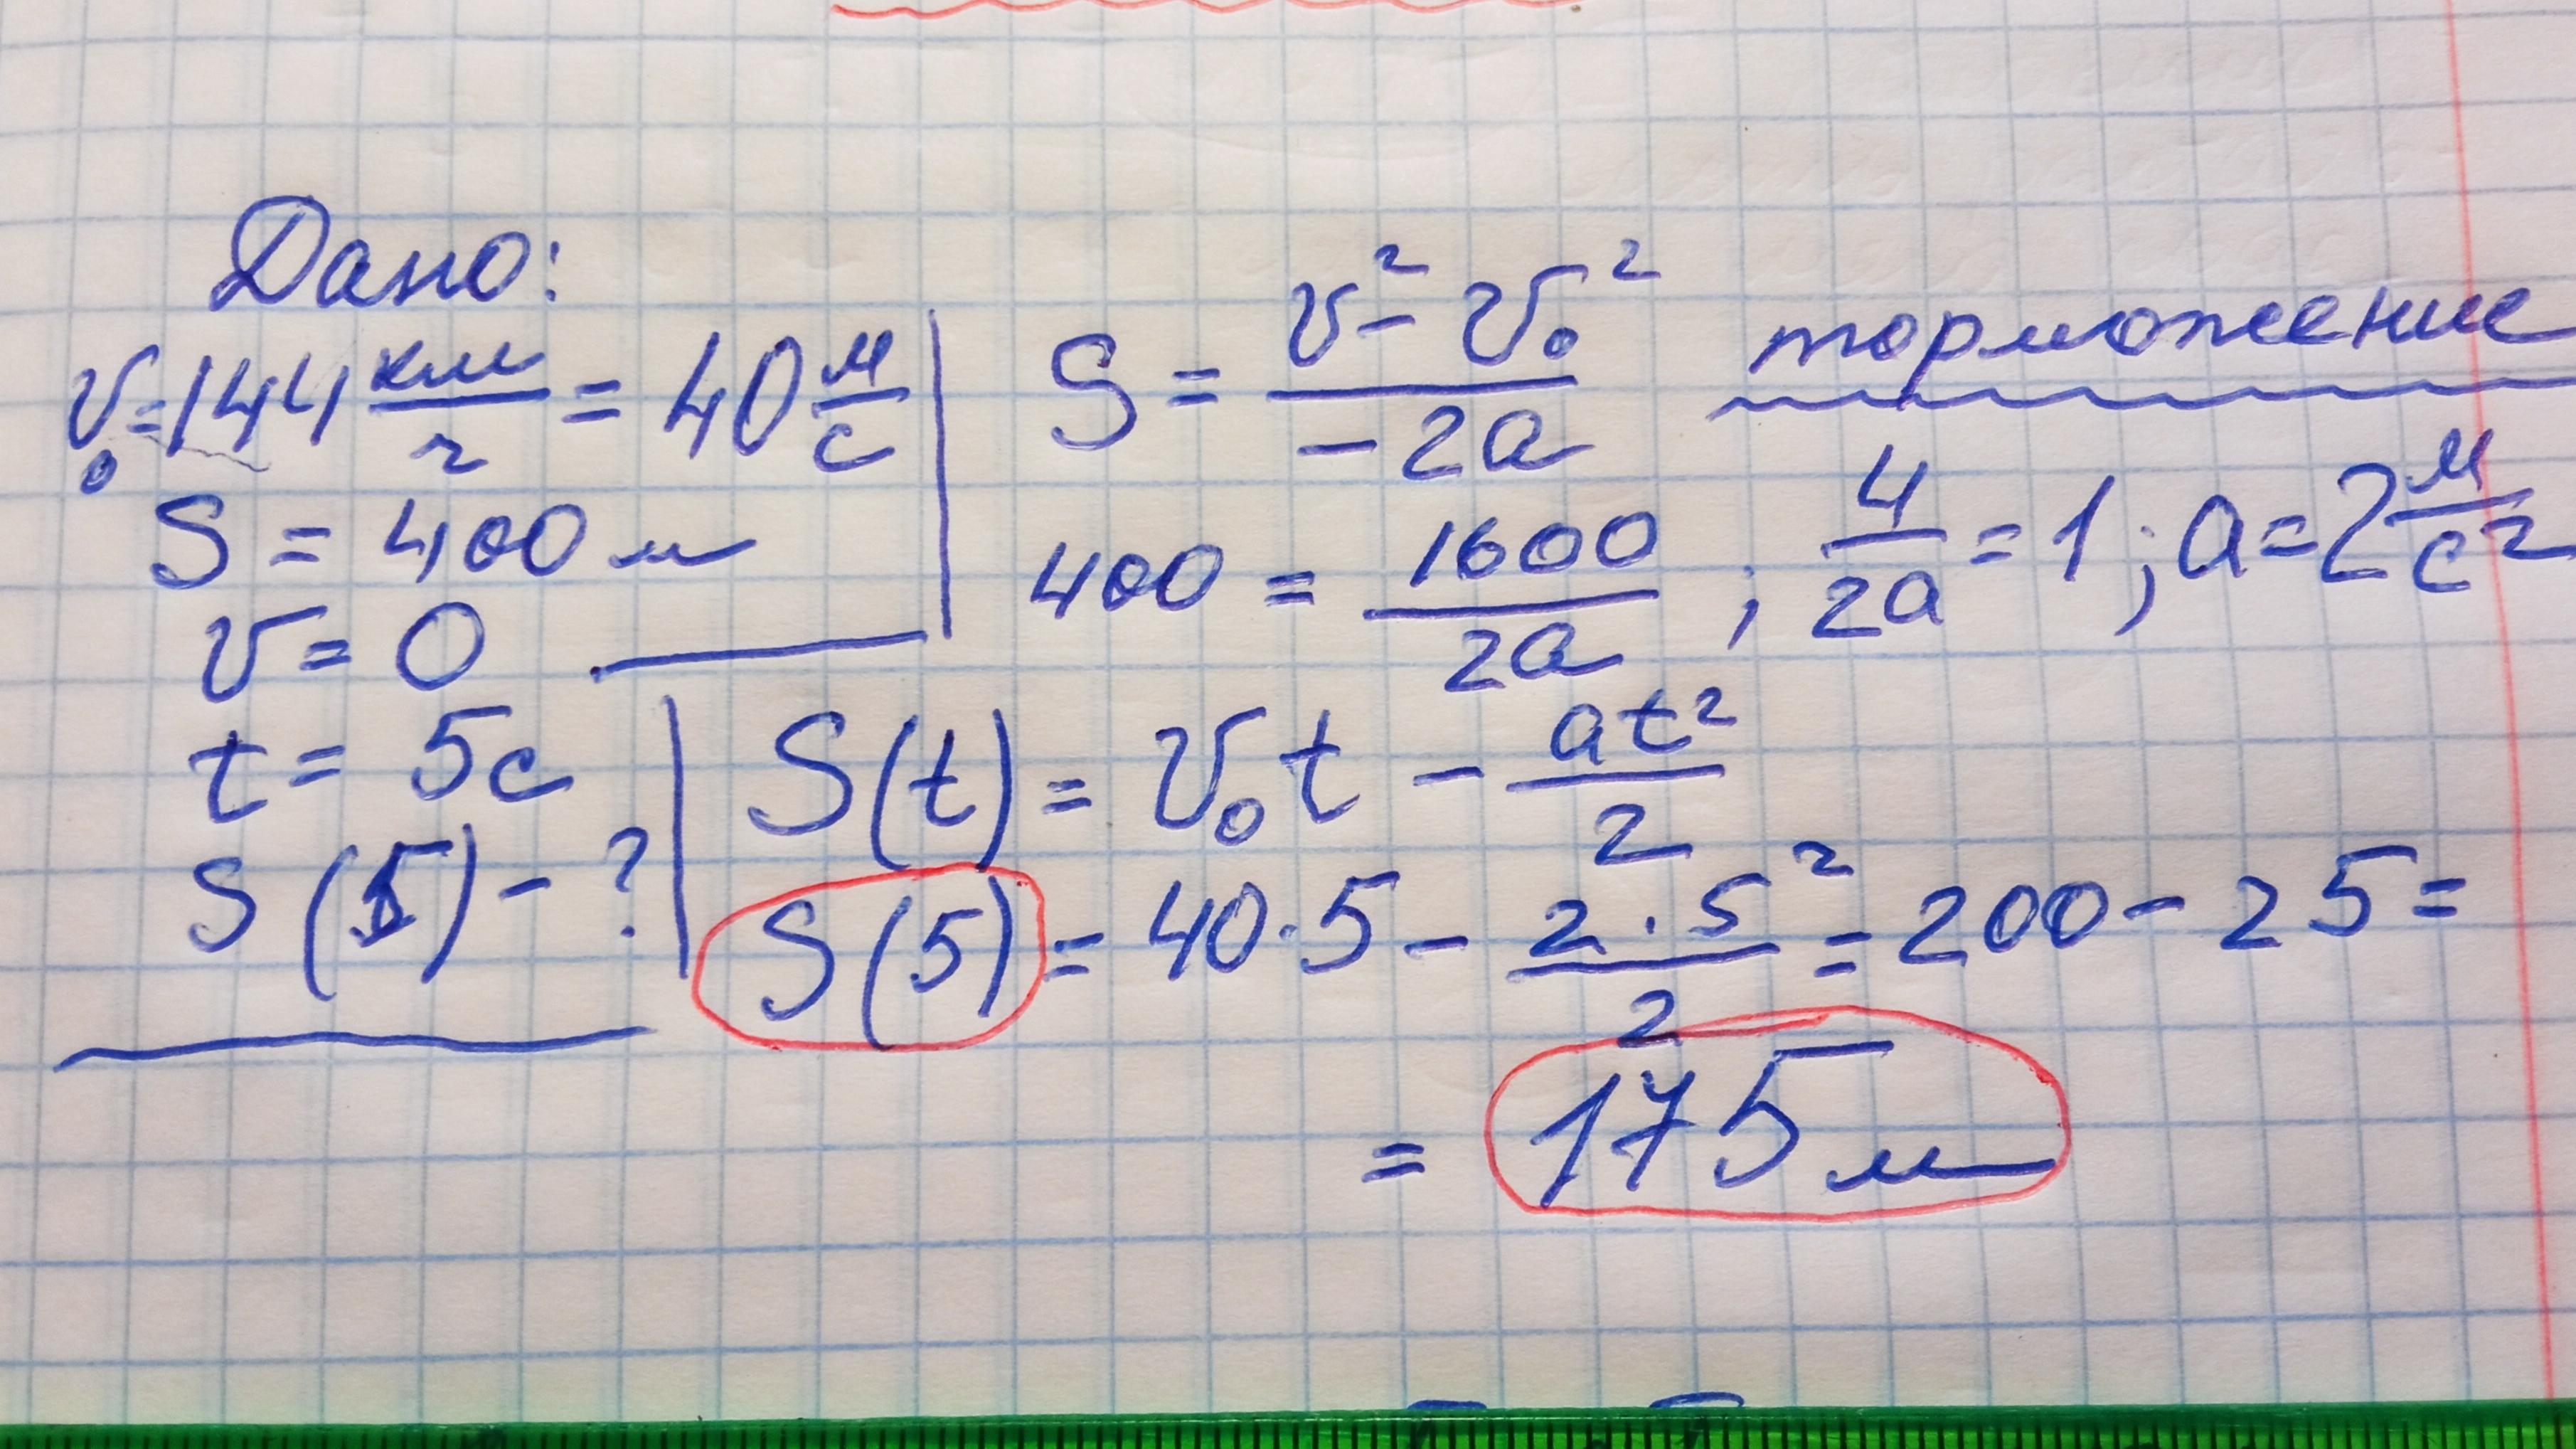 Дано:
v₀ = 144 км/г = 40 м/с
S = 400 м
v = 0
t = 5с
S(5) - ?
S = (v² - v₀²)/(-2a) торможение
400 = 1600/2a ; 4/2a = 1 ; a = 2 м/с²
S(t) = v₀t - at²/2
S(5) = 40·5 - 2·5²/2 = 200 - 25 =
= 175м